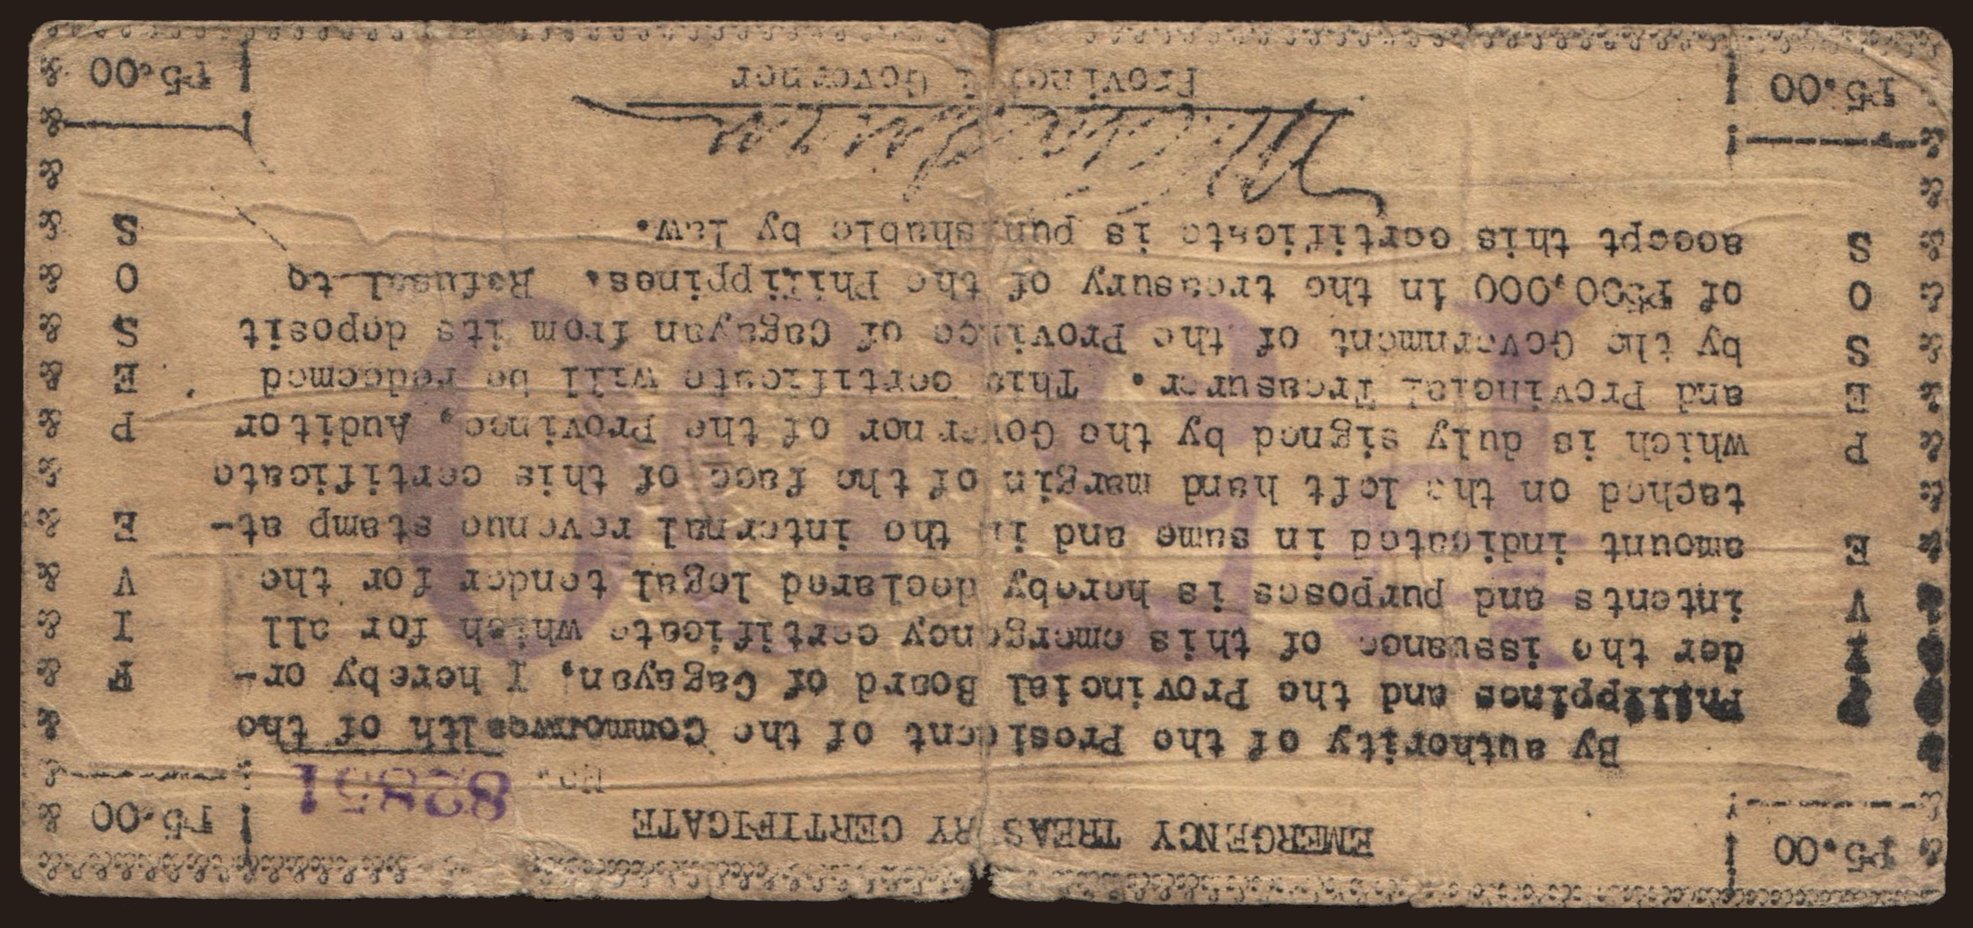 ₱5.00 EMERGENCY TREASURY CERTIFICATE ₱5.00
No. 82851
By authority of the President of the Commonwealth of the
Philippines and the Provincial Board of Cagayan, I hereby or-
der the issuance of this emergency certificate which for all
intents and purposes is hereby declared legal tender for the
amount indicated in same and in the internal revenue stamp at-
tached on the left hand margin of the face of this certificate
which is duly signed by the Governor of the Province, Auditor
and Provincial Treasurer. This certificate will be redeemed
by the Government of the Province of Cagayan from its deposit
of ₱500,000 in the treasury of the Philippines. Refusal to
accept this certificate is punishable by law.
Provincial Governor
₱5.00 ₱5.00
FIVE PESOS
FIVE PESOS
₱5.00